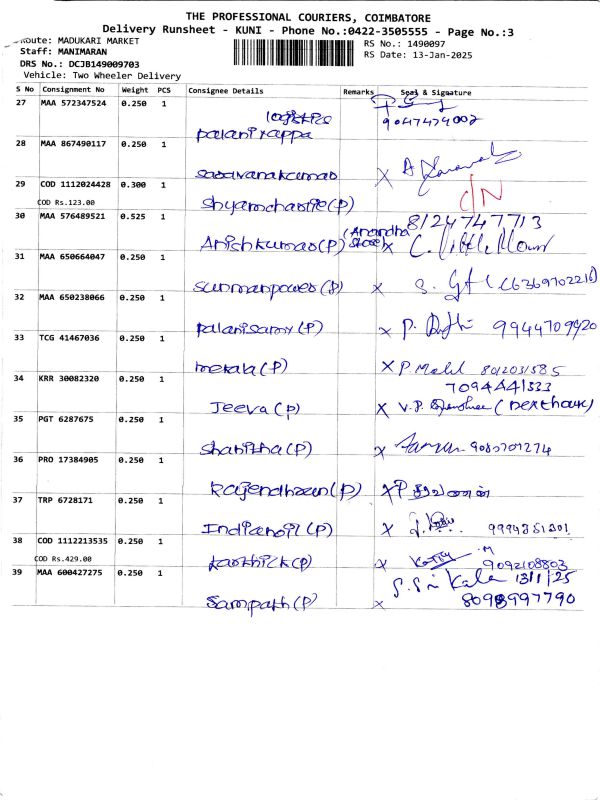 THE PROFESSIONAL COURIERS, COIMBATORE
Delivery Runsheet - KUNI - Phone No.:0422-3505555 - Page No.:3
Route: MADUKARI MARKET
Staff: MANIMARAN
DRS No.: DCJB149009703
Vehicle: Two Wheeler Delivery
RS No.: 1490097
RS Date: 13-Jan-2025
S No Consignment No Weight PCS Consignee Details Remarks Seal & Signature
27 MAA 572347524 0.250 1
palaniyappa 9047474002
28 MAA 867490117 0.250 1
saravanakumar
29 COD 1112024428 0.300 1
COD Rs.123.00
C/N
30 MAA 576489521 0.525 1
8124747713
Anishkumar(P)
31 MAA 650664047 0.250 1
sunmanpower(P) x
32 MAA 650238066 0.250 1
palanisamy(P) x
33 TCG 41467036 0.250 1
merala(P) x
34 KRR 30082320 0.250 1
7094441333
Jeeva(P) x
35 PGT 6287675 0.250 1
x
36 PRO 17384905 0.250 1
Rajendhran(P) x P சரவணன்
37 TRP 6728171 0.250 1
Indianoil(P) x
38 COD 1112213535 0.250 1
COD Rs.429.00
karthick(P) x 9092108803
39 MAA 600427275 0.250 1
S. Sri Kala 13/1/25
Sampath(P) x 8098997790